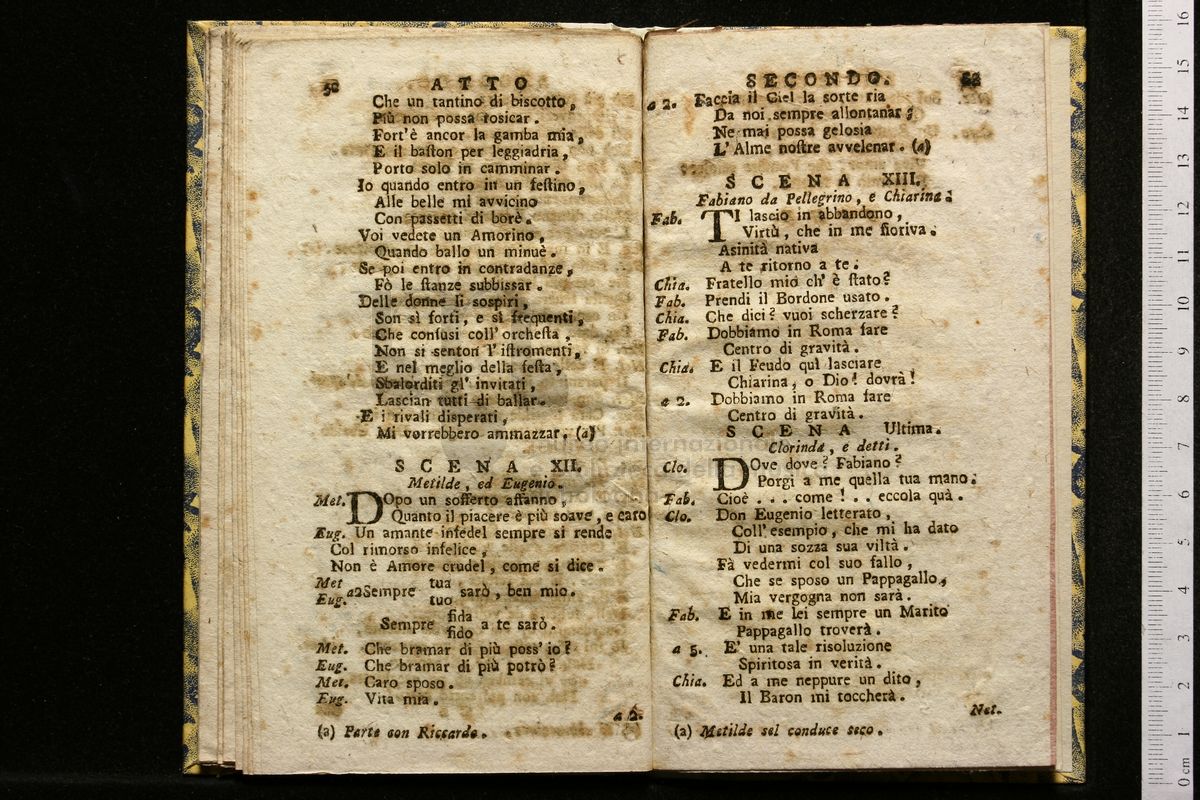 52
ATTO
Che un tantino di biscotto,
Più non possa rosicar.
Fort'è ancor la gamba mia,
E il baston per leggiadria,
Porto solo in camminar.
Io quando entro in un festino,
Alle belle mi avvicino
Con passetti di borè.
Voi vedete un Amorino,
Quando ballo un minuè.
Se poi entro in contradanze,
Fò le stanze subbissar.
Delle donne li sospiri,
Son sì forti, e sì frequenti,
Che confusi coll' orchesta,
Non si senton l' istromenti,
E nel meglio della festa,
Sbalorditi gl' invitati,
Lascian tutti di ballar.
E i rivali disperati,
Mi vorrebbero ammazzar. (a)
SCENA XII.
Metilde, ed Eugenio.
Met. DOpo un sofferto affanno,
Quanto il piacere è più soave, e caro
Eug. Un amante infedel sempre si rende
Col rimorso infelice,
Non è Amore crudel, come si dice.
Met tua
a2 Sempre sarò, ben mio.
Eug. tuo
fida
Sempre a te sarò.
fido
Met. Che bramar di più poss' io?
Eug. Che bramar di più potrò?
Met. Caro sposo.
Eug. Vita mia.
a 2.
(a) Parte con Riccardo.
SECONDO.
a 2. Faccia il Ciel la sorte ria
Da noi sempre allontanar;
Ne mai possa gelosia
L' Alme nostre avvelenar. (a)
SCENA XIII.
Fabiano da Pellegrino, e Chiarina.
Fab. TI lascio in abbandono,
Virtù, che in me fioriva.
Asinità nativa
A te ritorno a te.
Chia. Fratello mio ch' è stato?
Fab. Prendi il Bordone usato.
Chia. Che dici? vuoi scherzare?
Fab. Dobbiamo in Roma fare
Centro di gravità.
Chia. E il Feudo quì lasciare
Chiarina, o Dio! dovrà!
a 2. Dobbiamo in Roma fare
Centro di gravità.
SCENA Ultima.
Clorinda, e detti.
Clo. DOve dove? Fabiano?
Porgi a me quella tua mano.
Fab. Cioè . . . come ! . . eccola quà.
Clo. Don Eugenio letterato,
Coll' esempio, che mi ha dato
Di una sozza sua viltà.
Fà vedermi col suo fallo,
Che se sposo un Pappagallo,
Mia vergogna non sarà.
Fab. E in me lei sempre un Marito
Pappagallo troverà.
a 5. E' una tale risoluzione
Spiritosa in verità.
Chia. Ed a me neppure un dito,
Il Baron mi toccherà.
Net.
(a) Metilde sel conduce seco.
0 cm 1 2 3 4 5 6 7 8 9 10 11 12 13 14 15 16